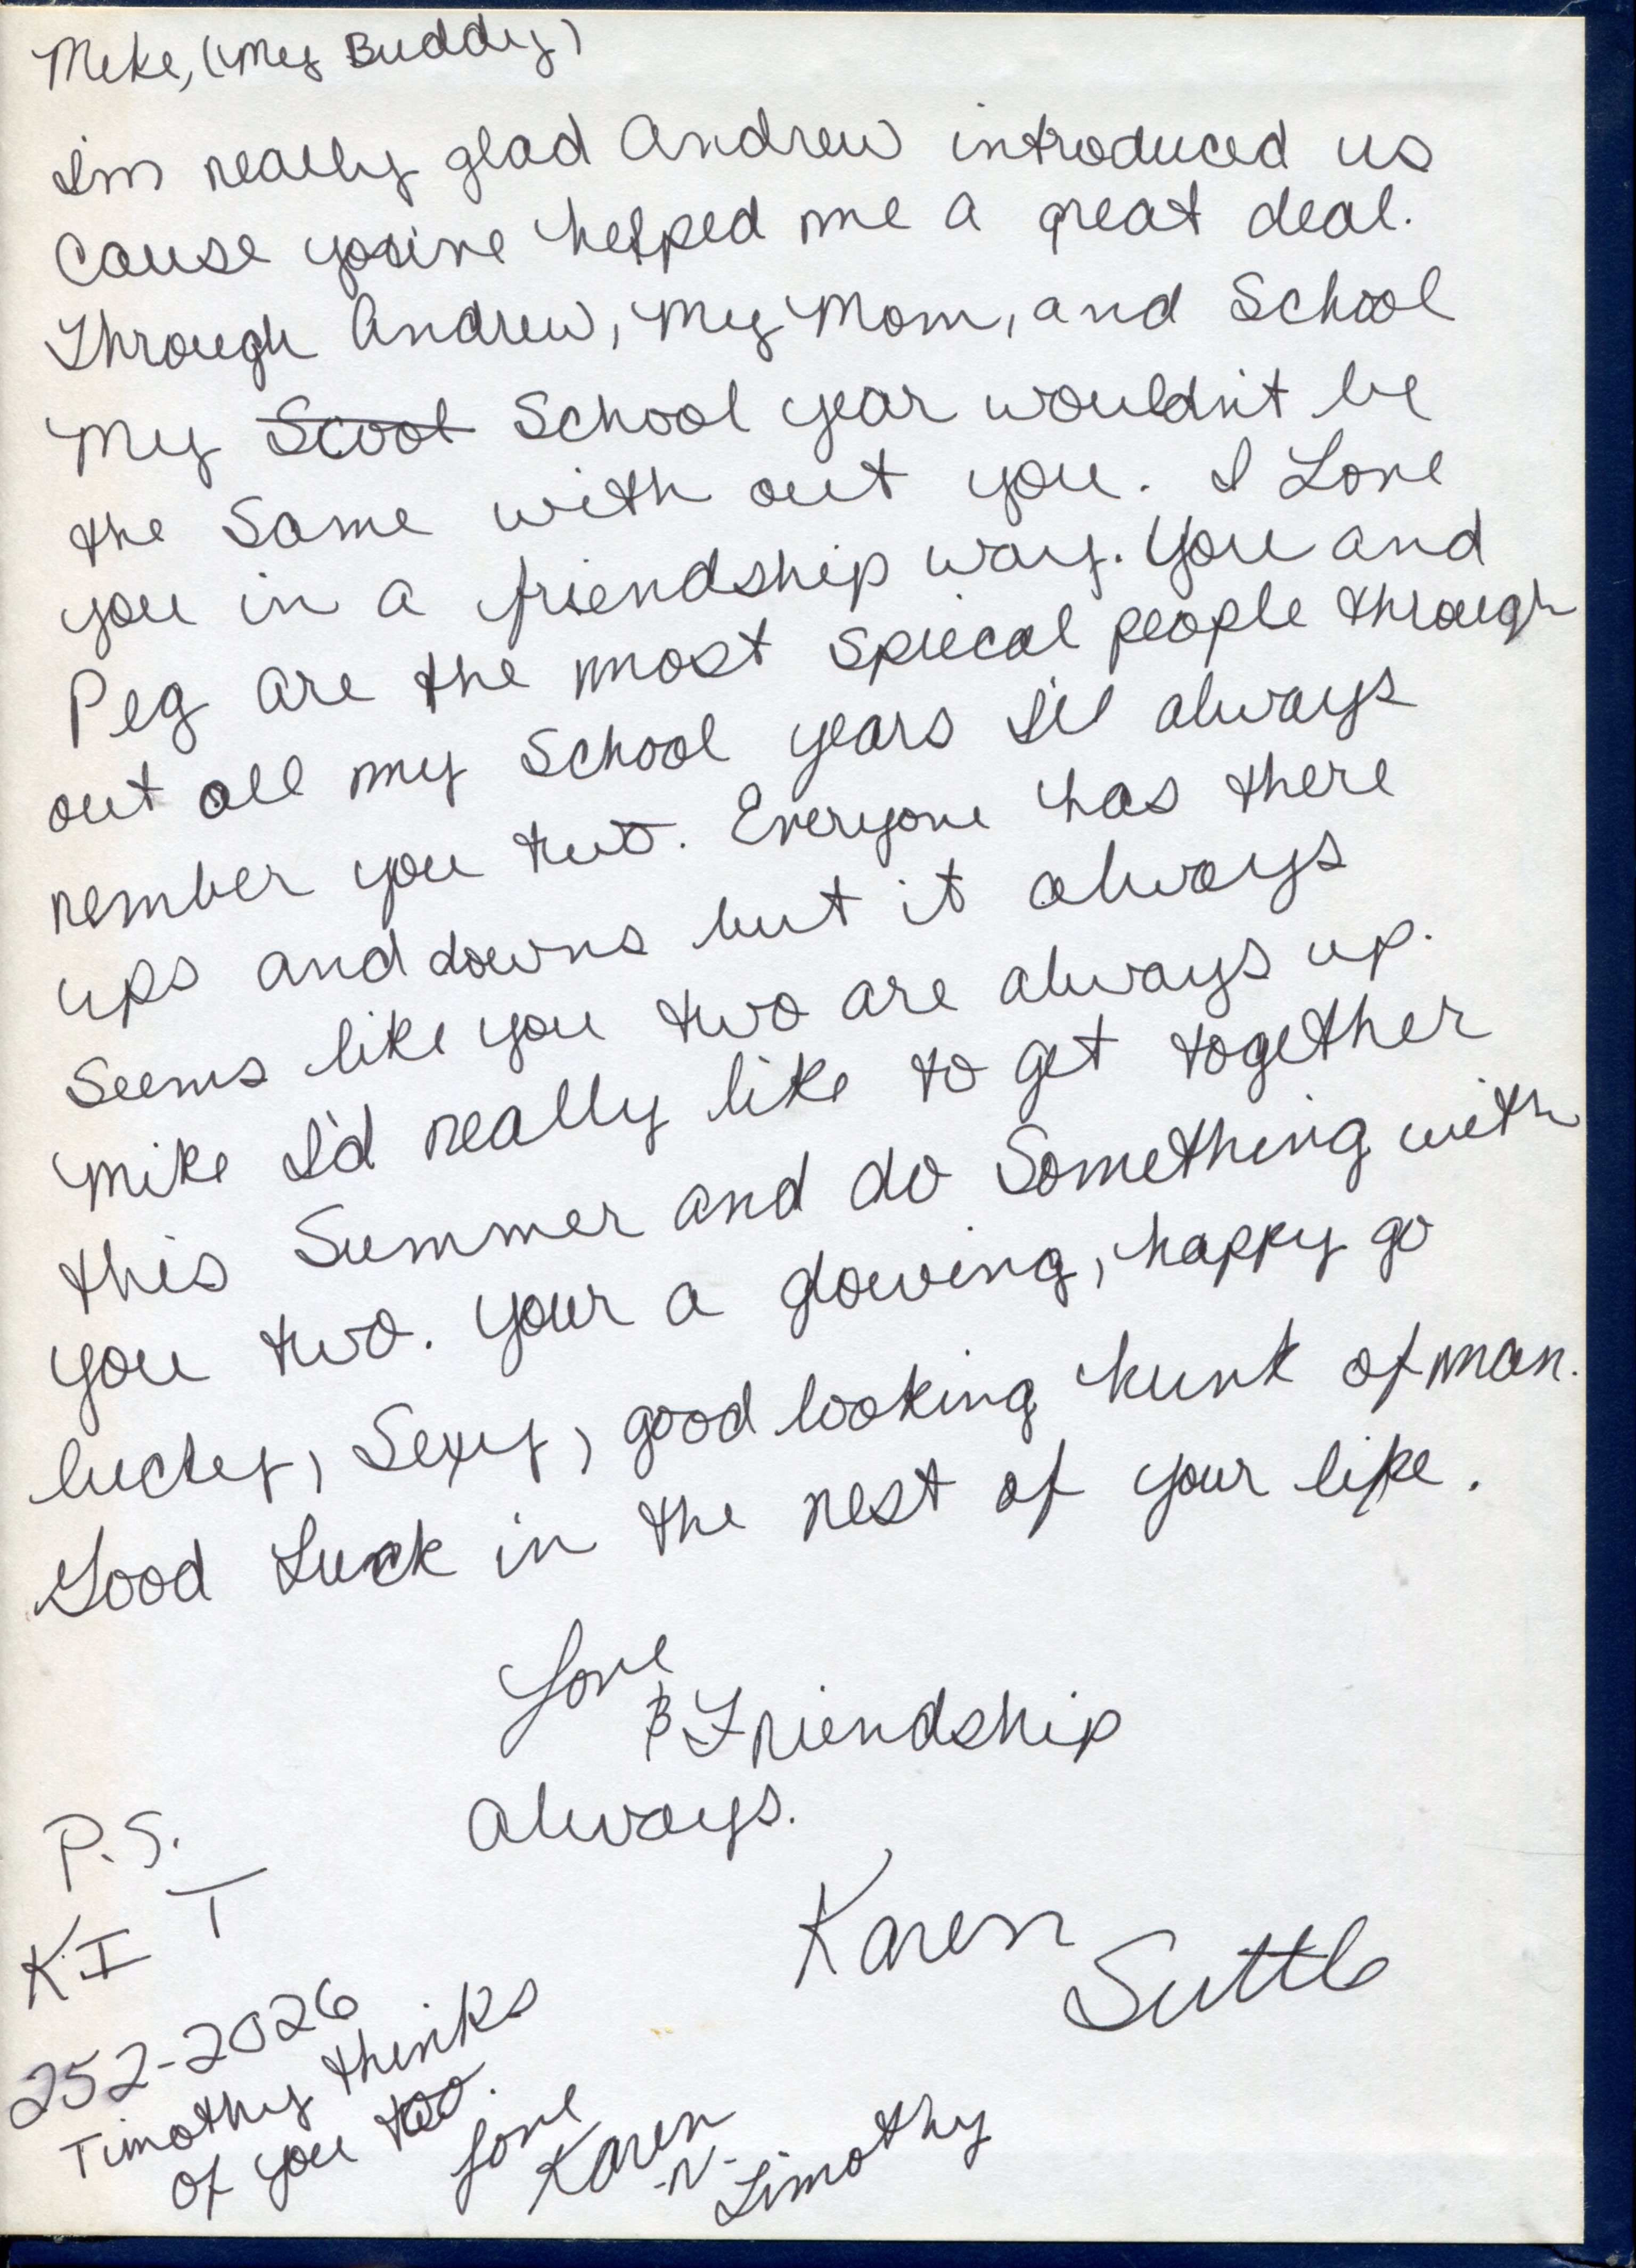 Mike, (My Buddy)
I'm really glad Andrew introduced us
Cause you've helped me a great deal.
Through Andrew, My Mom, and School
My Scool School year wouldn't be
the Same with out you. I Love
you in a friendship way. You and
Peg are the most spiecal people through
out all my School years I'll always
rember you two. Everyone has there
ups and downs but it always
Seems like you two are always up.
Mike I'd really like to get together
this Summer and do Something with
you two. Your a glowing, happy go
lucky, Sexy, good looking hunk of man.
Good Luck in the rest of your life.
Love
& Friendship
Always.
Karen
Suttle
P.S.
KIT
252-2026
Timothy thinks
of you too.
Love
Karen
-N-
Timothy